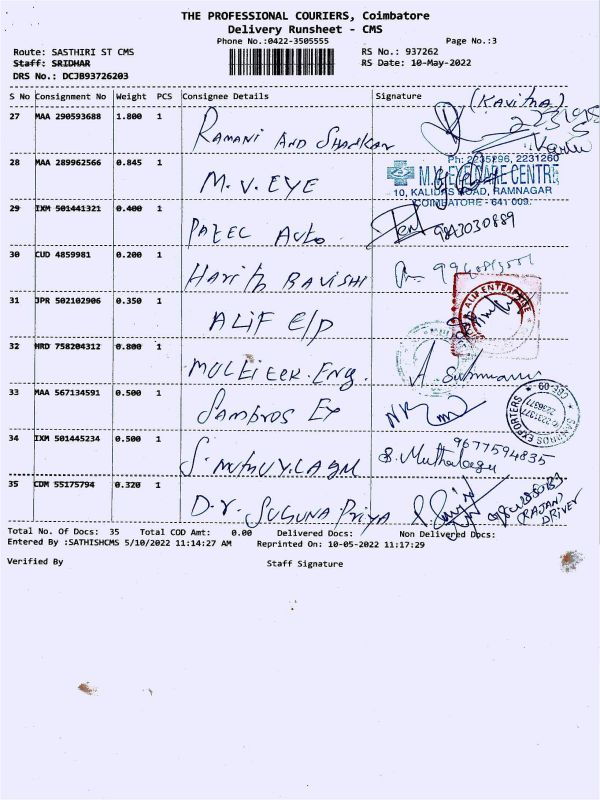 THE PROFESSIONAL COURIERS, Coimbatore
Delivery Runsheet - CMS
Phone No.:0422-3505555
Page No.:3
Route: SASTHIRI ST CMS
RS No.: 937262
Staff: SRIDHAR
RS Date: 10-May-2022
DRS No.: DCJB93726203
S No Consignment No Weight PCS Consignee Details Signature
(Kavitha)
27 MAA 290593688 1.800 1 Ramani And Shankar
28 MAA 289962566 0.845 1 M.V. EYE
Ph: 2235296, 2231260
M.V. EYE CARE CENTRE
10, KALIDAS ROAD, RAMNAGAR
COIMBATORE - 641 009.
29 IXM 501441321 0.400 1 PATEL Auto 9843030889
30 CUD 4859981 0.200 1 Harith RAVISHI
31 JPR 502102906 0.350 1 ALIF E/P
ALIF ENTERPRISE
32 HRD 758204312 0.800 1 Eng.
33 MAA 567134591 0.500 1 Sambros Ex
SAMBROS EXPORTERS
34 IXM 501445234 0.500 1 S. 9677594835
B. Muthalagu
35 CDM 55175794 0.320 1 D.r. SUGUNA PriyA
(RAJAN)
DRIVER
Total No. Of Docs: 35 Total COD Amt: 0.00 Delivered Docs: Non Delivered Docs:
Entered By :SATHISHCMS 5/10/2022 11:14:27 AM Reprinted On: 10-05-2022 11:17:29
Verified By Staff Signature